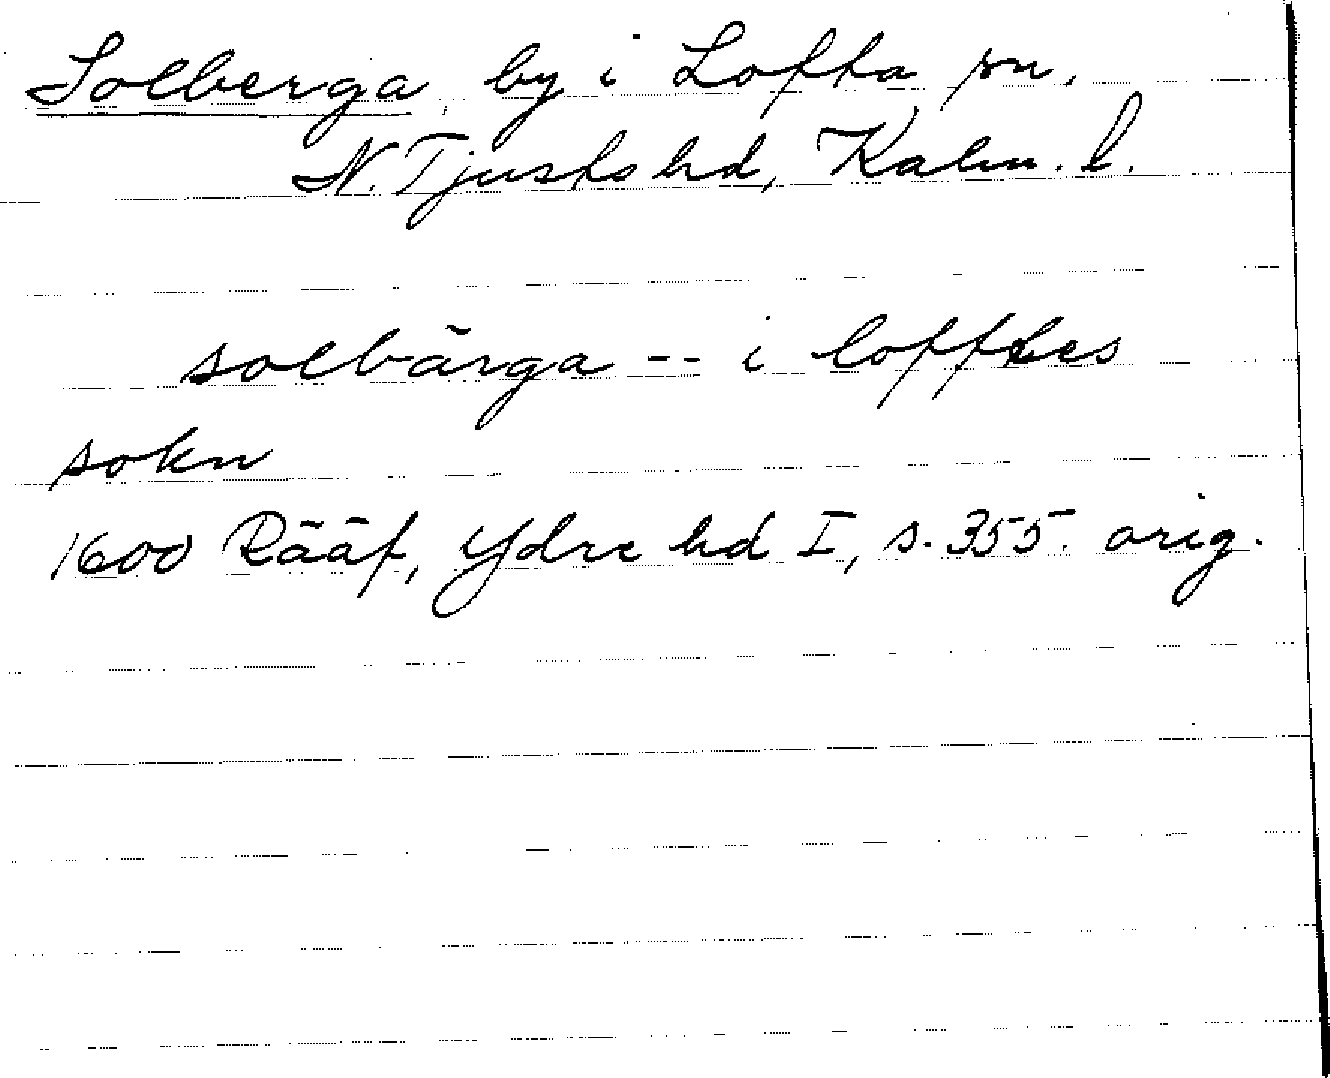 Solberga, by i Lofta sn,
N. Tjusts hd, Kalm. l.
solbärga -- i lofftes
sokn
1600 Rääf, Ydre hd I, s. 355. orig.